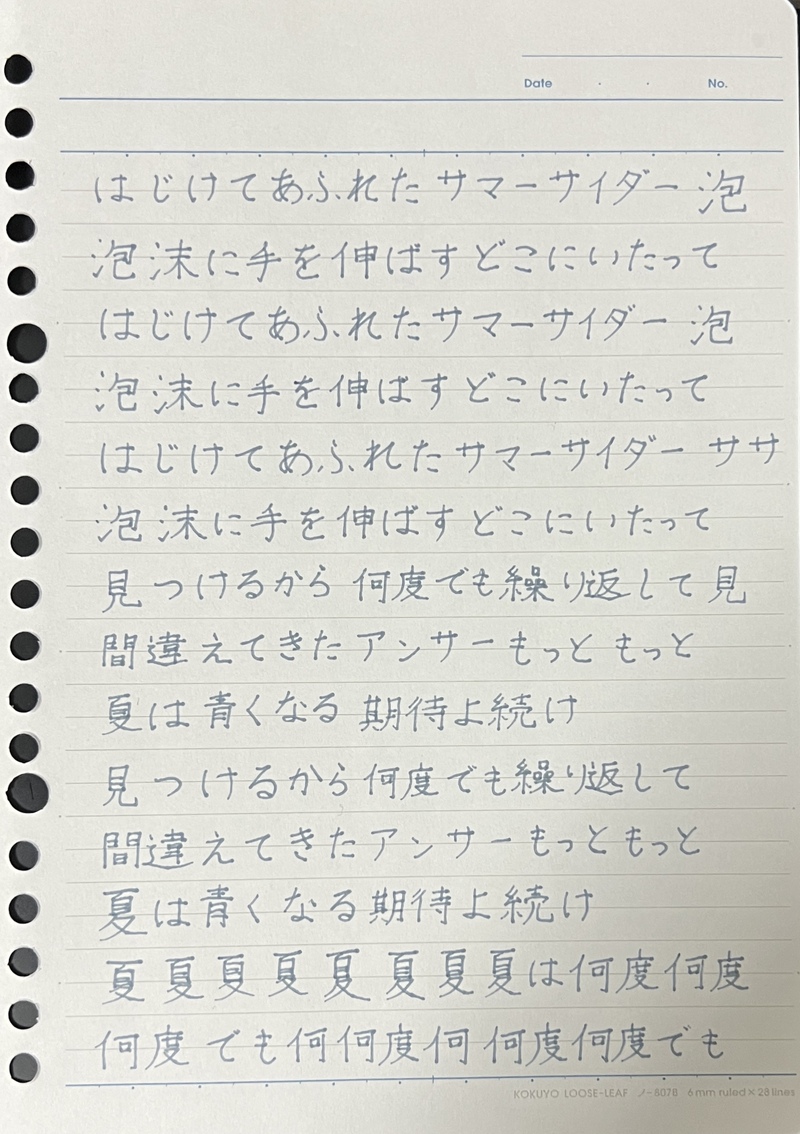 Date ・ ・ No.
はじけてあふれたサマーサイダー 泡
泡沫に手を伸ばすどこにいたって
はじけてあふれたサマーサイダー 泡
泡沫に手を伸ばすどこにいたって
はじけてあふれたサマーサイダー ササ
泡沫に手を伸ばすどこにいたって
見つけるから 何度でも繰り返して 見
間違えてきたアンサーもっと もっと
夏は青くなる 期待よ続け
見つけるから何度でも繰り返して
間違えてきたアンサーもっともっと
夏は青くなる期待よ続け
夏夏夏夏夏夏夏夏は何度何度
何度でも何何度何何度何度でも
KOKUYO LOOSE-LEAF ノ-807B 6mm ruled×28 lines